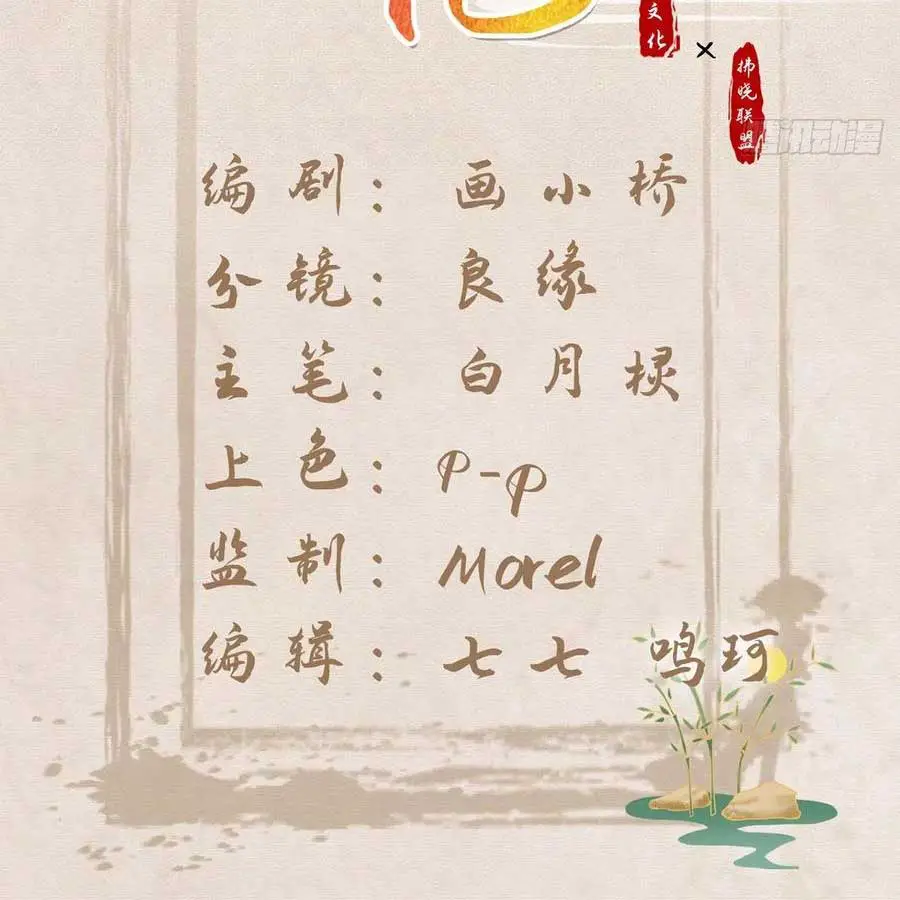 文化
×
拂晓联盟
腾讯动漫
编剧：画小桥
分镜：良缘
主笔：白月棂
上色：P-P
监制：Morel
编辑：七七 鸣珂